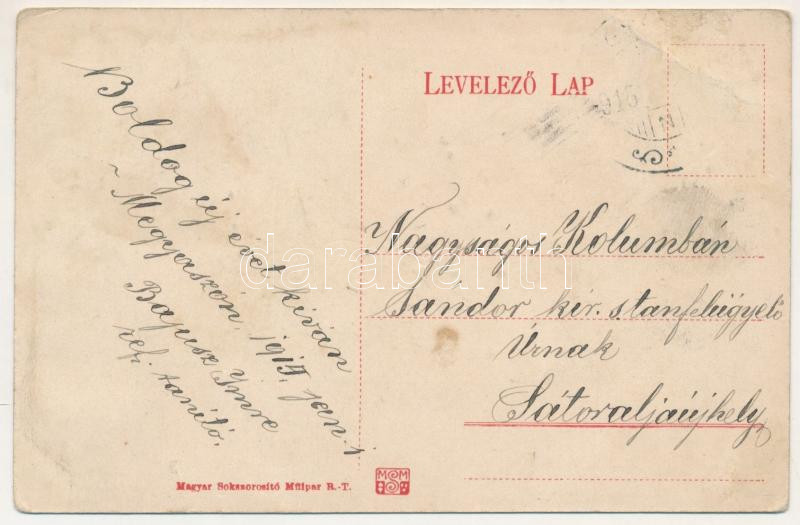 LEVELEZŐ LAP
915
Boldog új évet kíván
Megyaszón, 1915. jan. 1.
Bajusz Imre
ref. tanító.
Nagyságos Kolumbán
Sándor kir. stanfelügyelő
Úrnak
Sátoraljaújhely
darabanth
Magyar Sokszorosító Műipar R.-T.
MSM